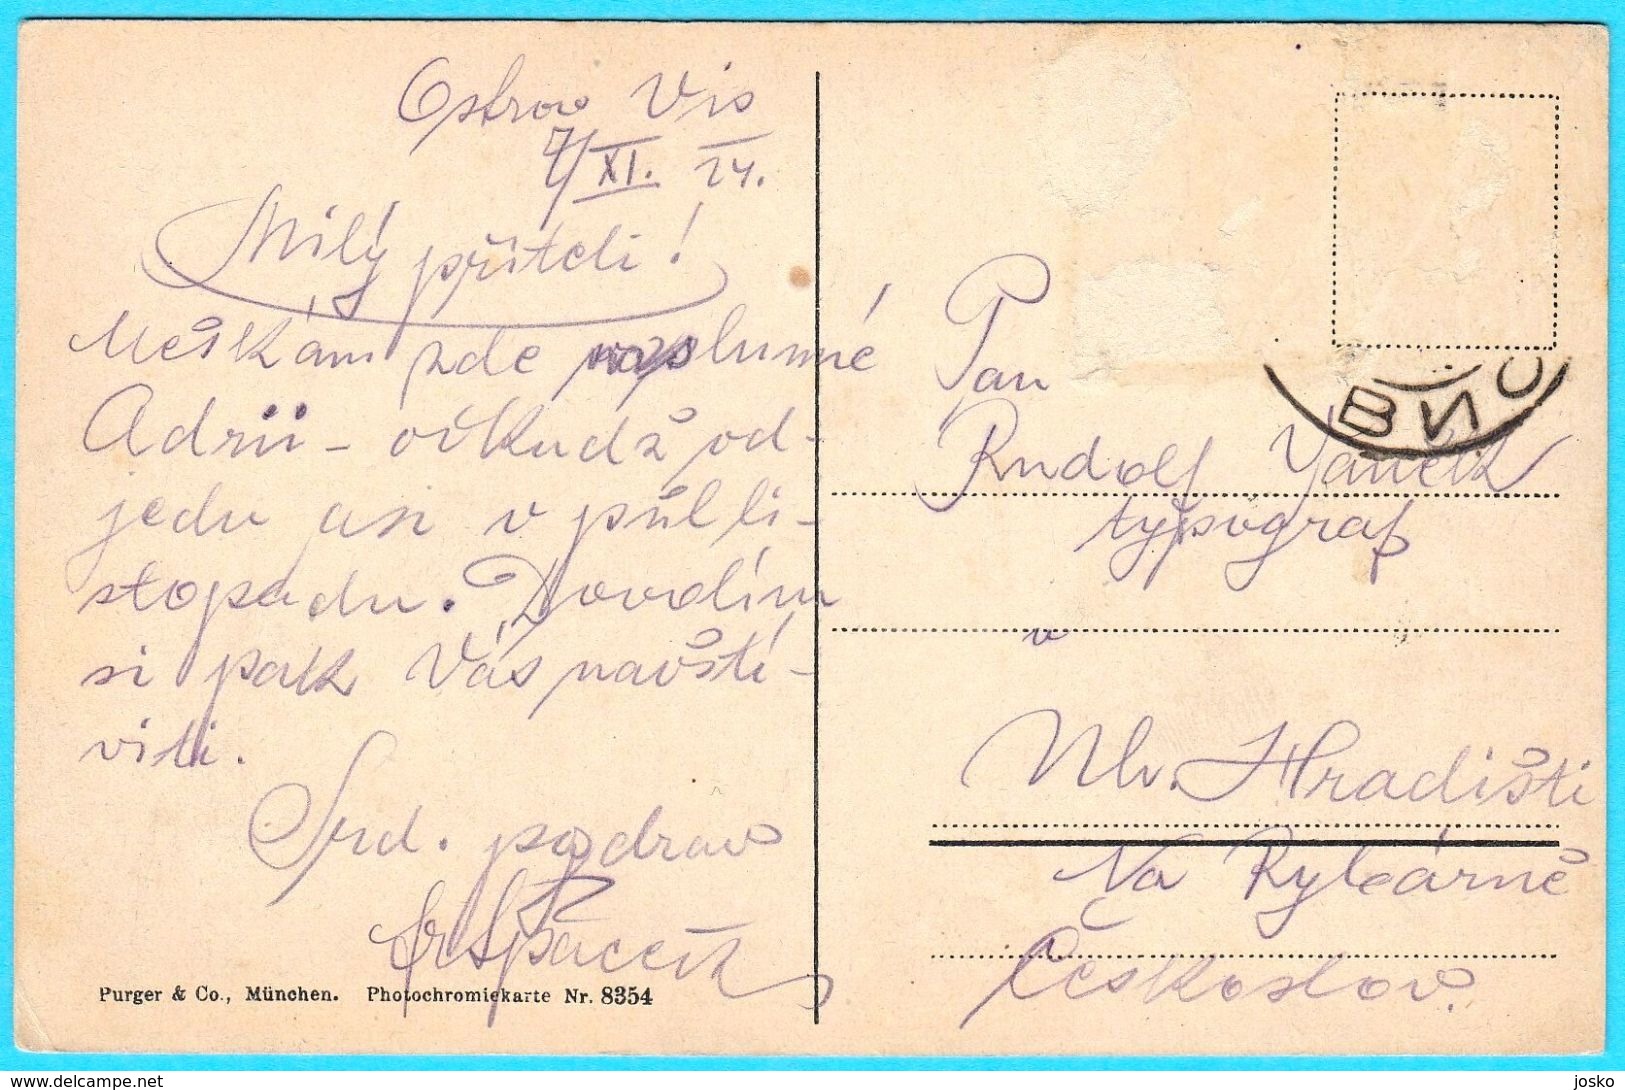 Ostrov Vis
7/XI. 24.
Milý příteli!
Meškám zde na slunné
Adrii – očkudž od-
jedu asi v půl li-
stopadu. Dovolím
si pak Vás navští-
viti.
Srd. pozdrav
Špaček
Purger & Co., München. Photochromiekarte Nr. 8354
ВИС
Pan
Rudolf Vaněk
typograf
v
Uh. Hradišti
Na Rybárně
Českoslov.
delcampe.net
josko